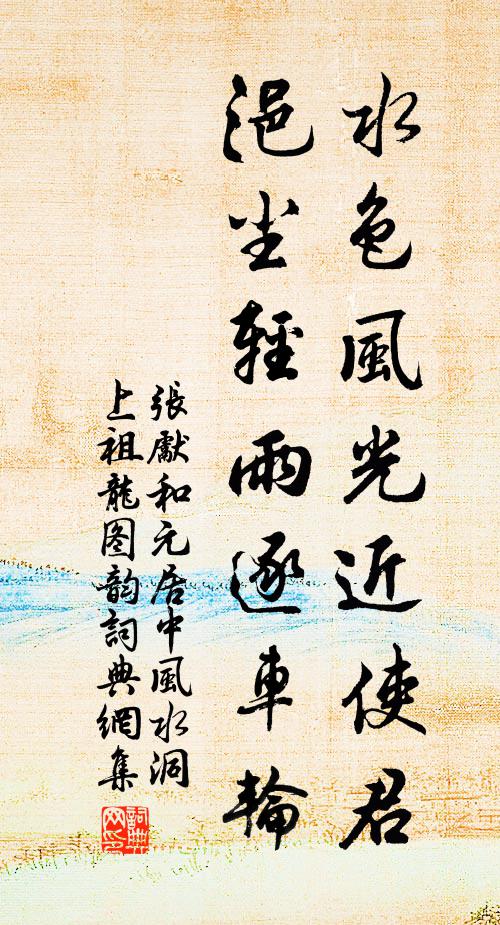 水色風光近使君
浥尘輕雨逐車輪
張獻和元居中風水洞
上祖龍图韵詞典網集
詞典网句